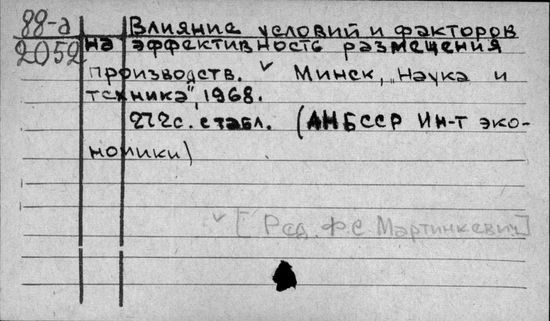 88-а
2052
Влияние условий и факторов
на эффективность размещения
производств. ✓ Минск, „Наука и
техника", 1968.
272с. с табл. (АНБССР Ин-т эко-
номики)
✓ [Ред. Ф.С Мартинкевич]